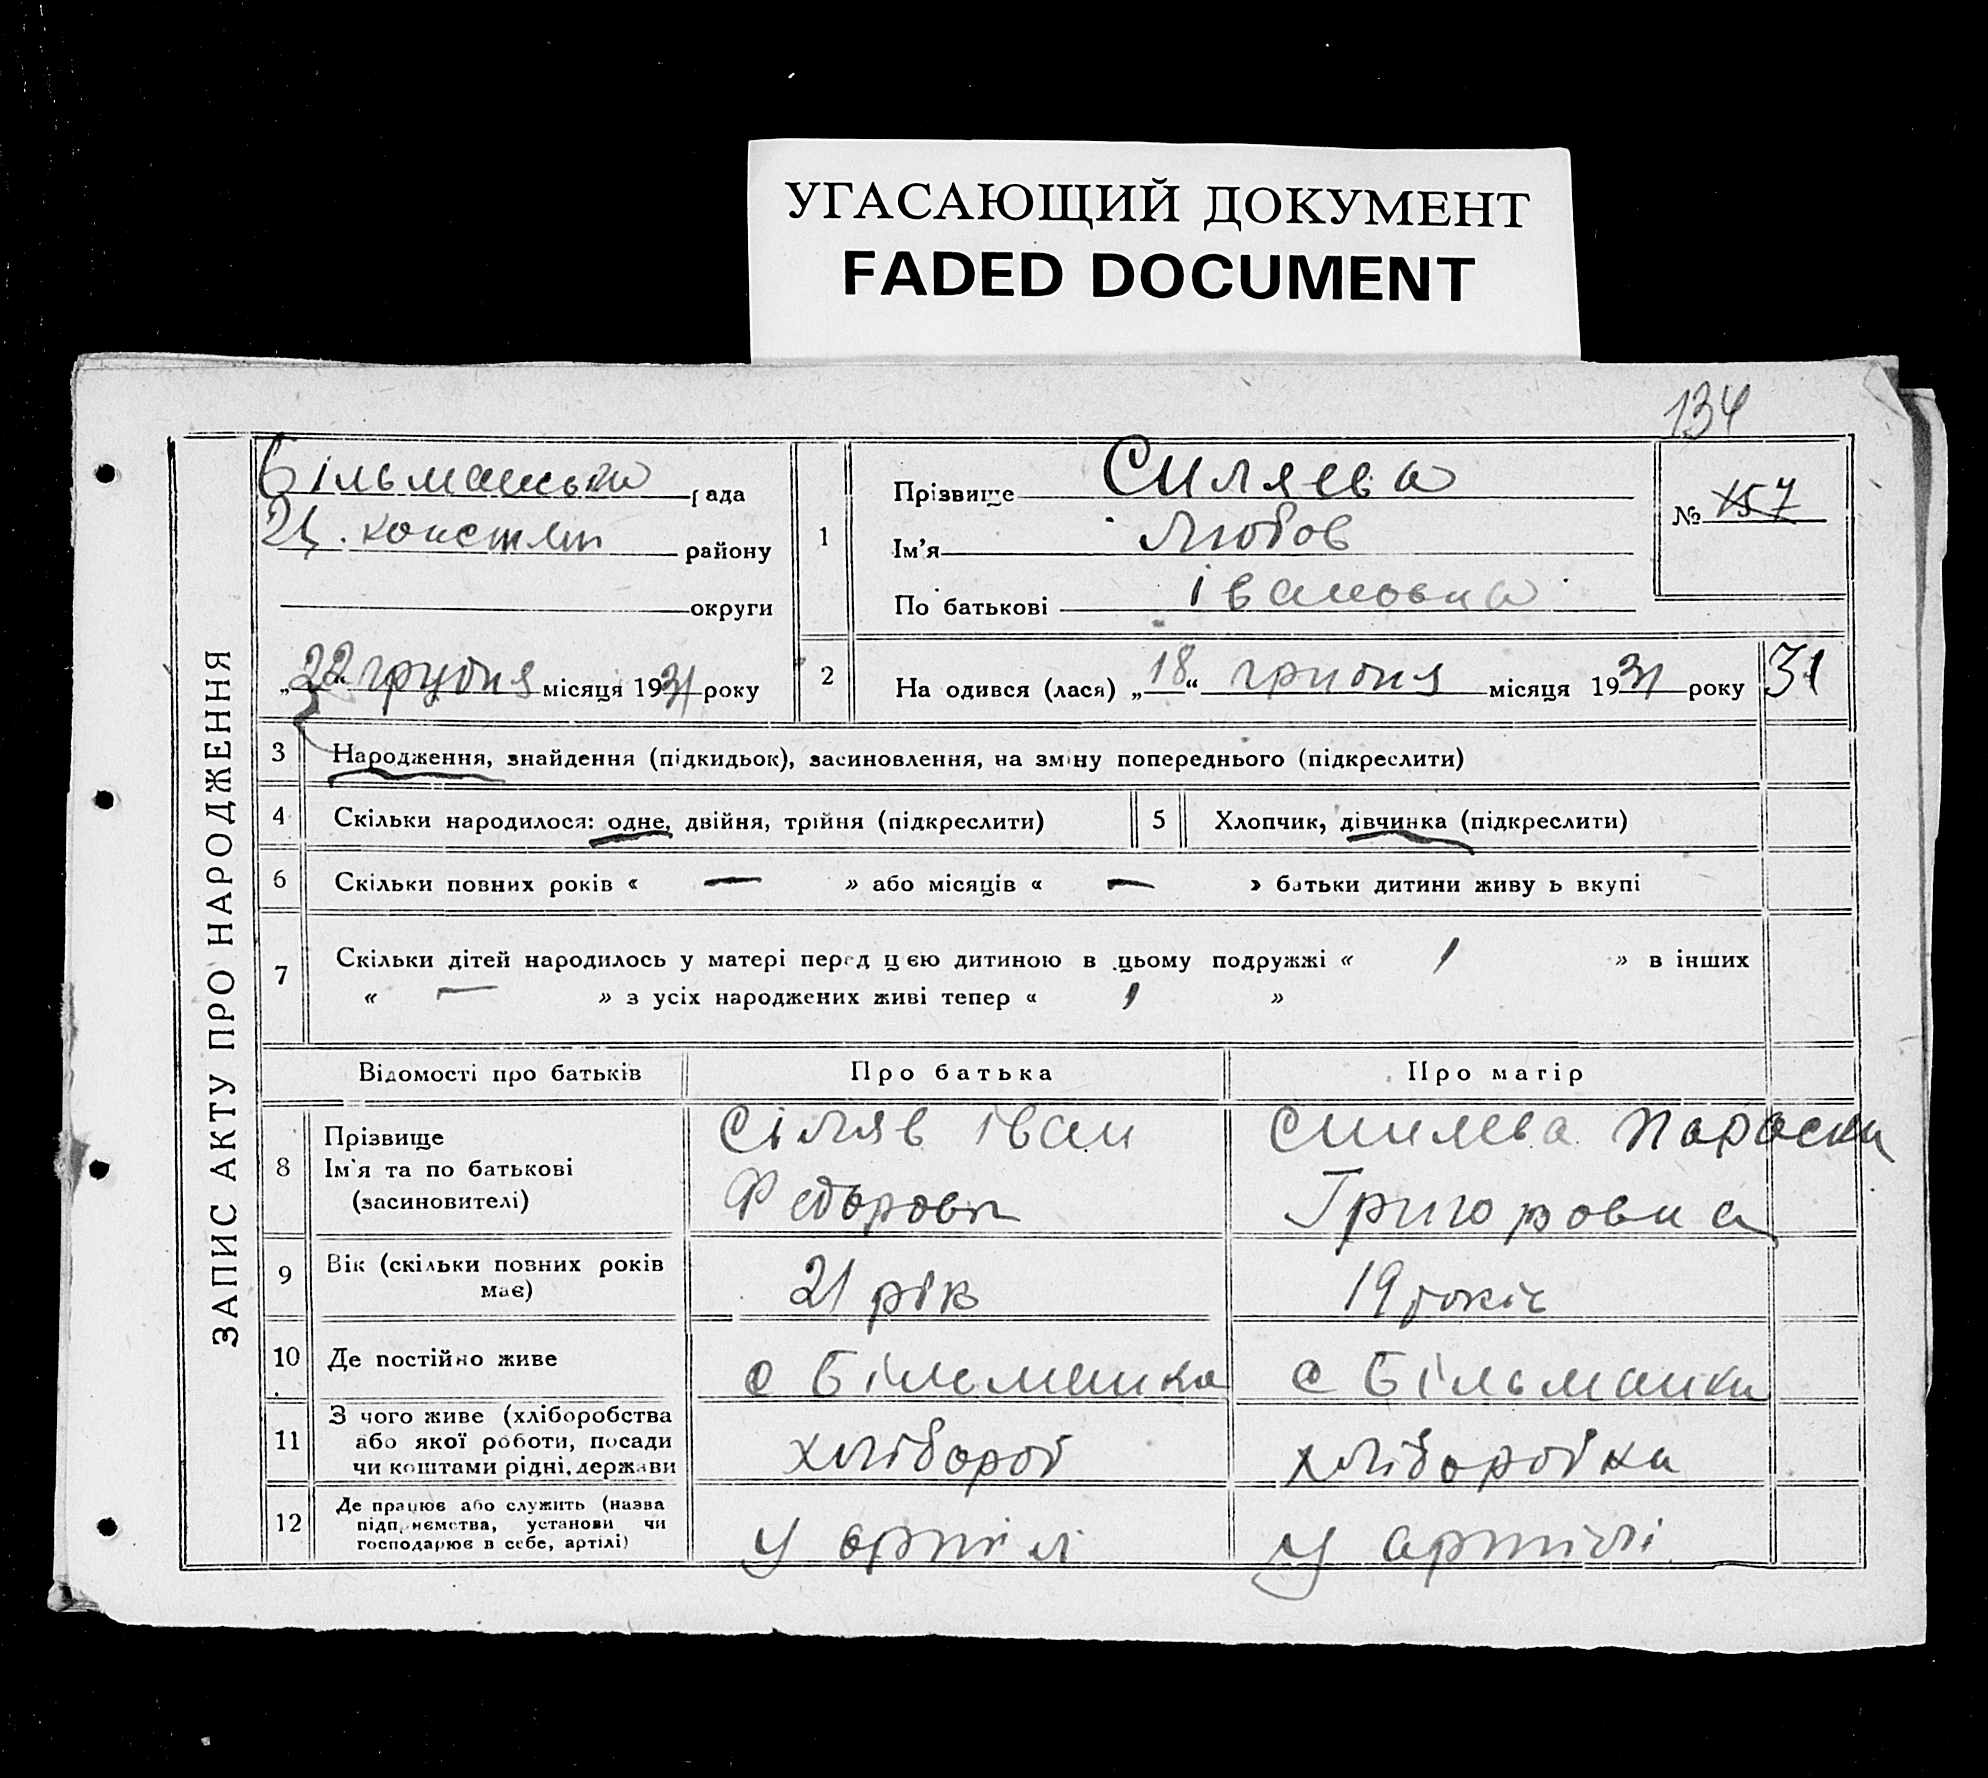 УГАСАЮЩИЙ ДОКУМЕНТ
FADED DOCUMENT
134
ЗАПИС АКТУ ПРО НАРОДЖЕННЯ
Більманська рада
района
округи
„22“ грудня місяця 1931 року
1
Прізвище Силяева
Ім’я Любов
По батькові Івановна
№ 157
2
На одився (лася) „18“ грудня місяця 1931 року
31
3 Народження, знайдення (підкидьок), засиновлення, на зміну попереднього (підкреслити)
4 Скільки народилося: одне, двійня, трійня (підкреслити)
5 Хлопчик, дівчинка (підкреслити)
6 Скільки повних років « — » або місяців « — » батьки дитини живу ь вкупі
7 Скільки дітей народилось у матері перед цією дитиною в цьому подружжі « 1 » в інших
« — » з усіх народжених живі тепер « 1 »
Відомості про батьків Про батька Про матір
8 Прізвище
Ім’я та по батькові
(засиновителі)
Сіляв Іван
Федорови
Силяева Параска
Григоровна
9 Вік (скільки повних років
має)
21 рік
19 років
10 Де постійно живе
с Більманка
с Більманка
11 З чого живе (хліборобства
або якої роботи, посади
чи коштами рідні, держави
хлібороб
хліборобка
12 Де працює або служить (назва
підприємства, установи чи
господарює в себе, артілі)
у артіл
у артілі